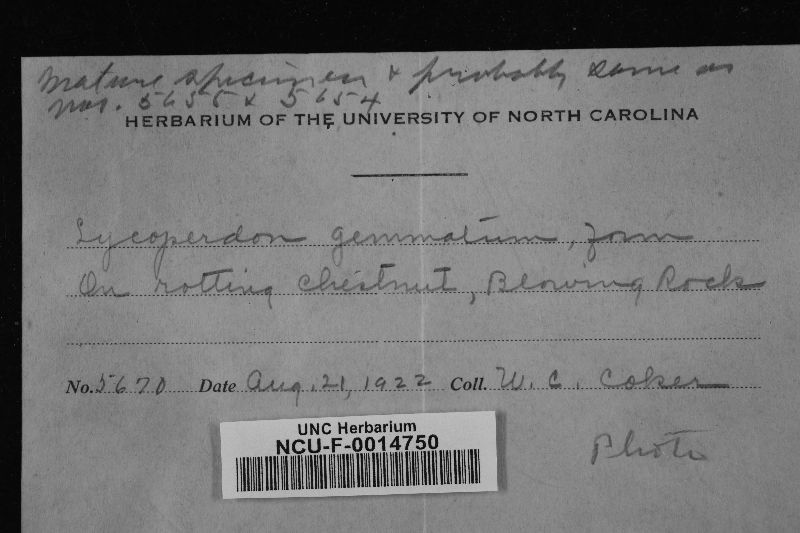 Mature specimen & probably same as
nos. 5655 & 5654
HERBARIUM OF THE UNIVERSITY OF NORTH CAROLINA
Lycoperdon gemmatum, form
On rotting chestnut, Blowing Rock
No. 5670 Date Aug. 21, 1922 Coll. W. C. Coker
UNC Herbarium
NCU-F-0014750
Photo